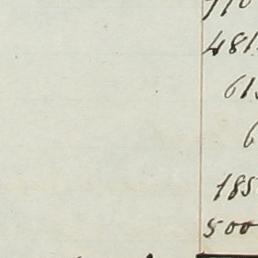 110
481
61
6
185
500